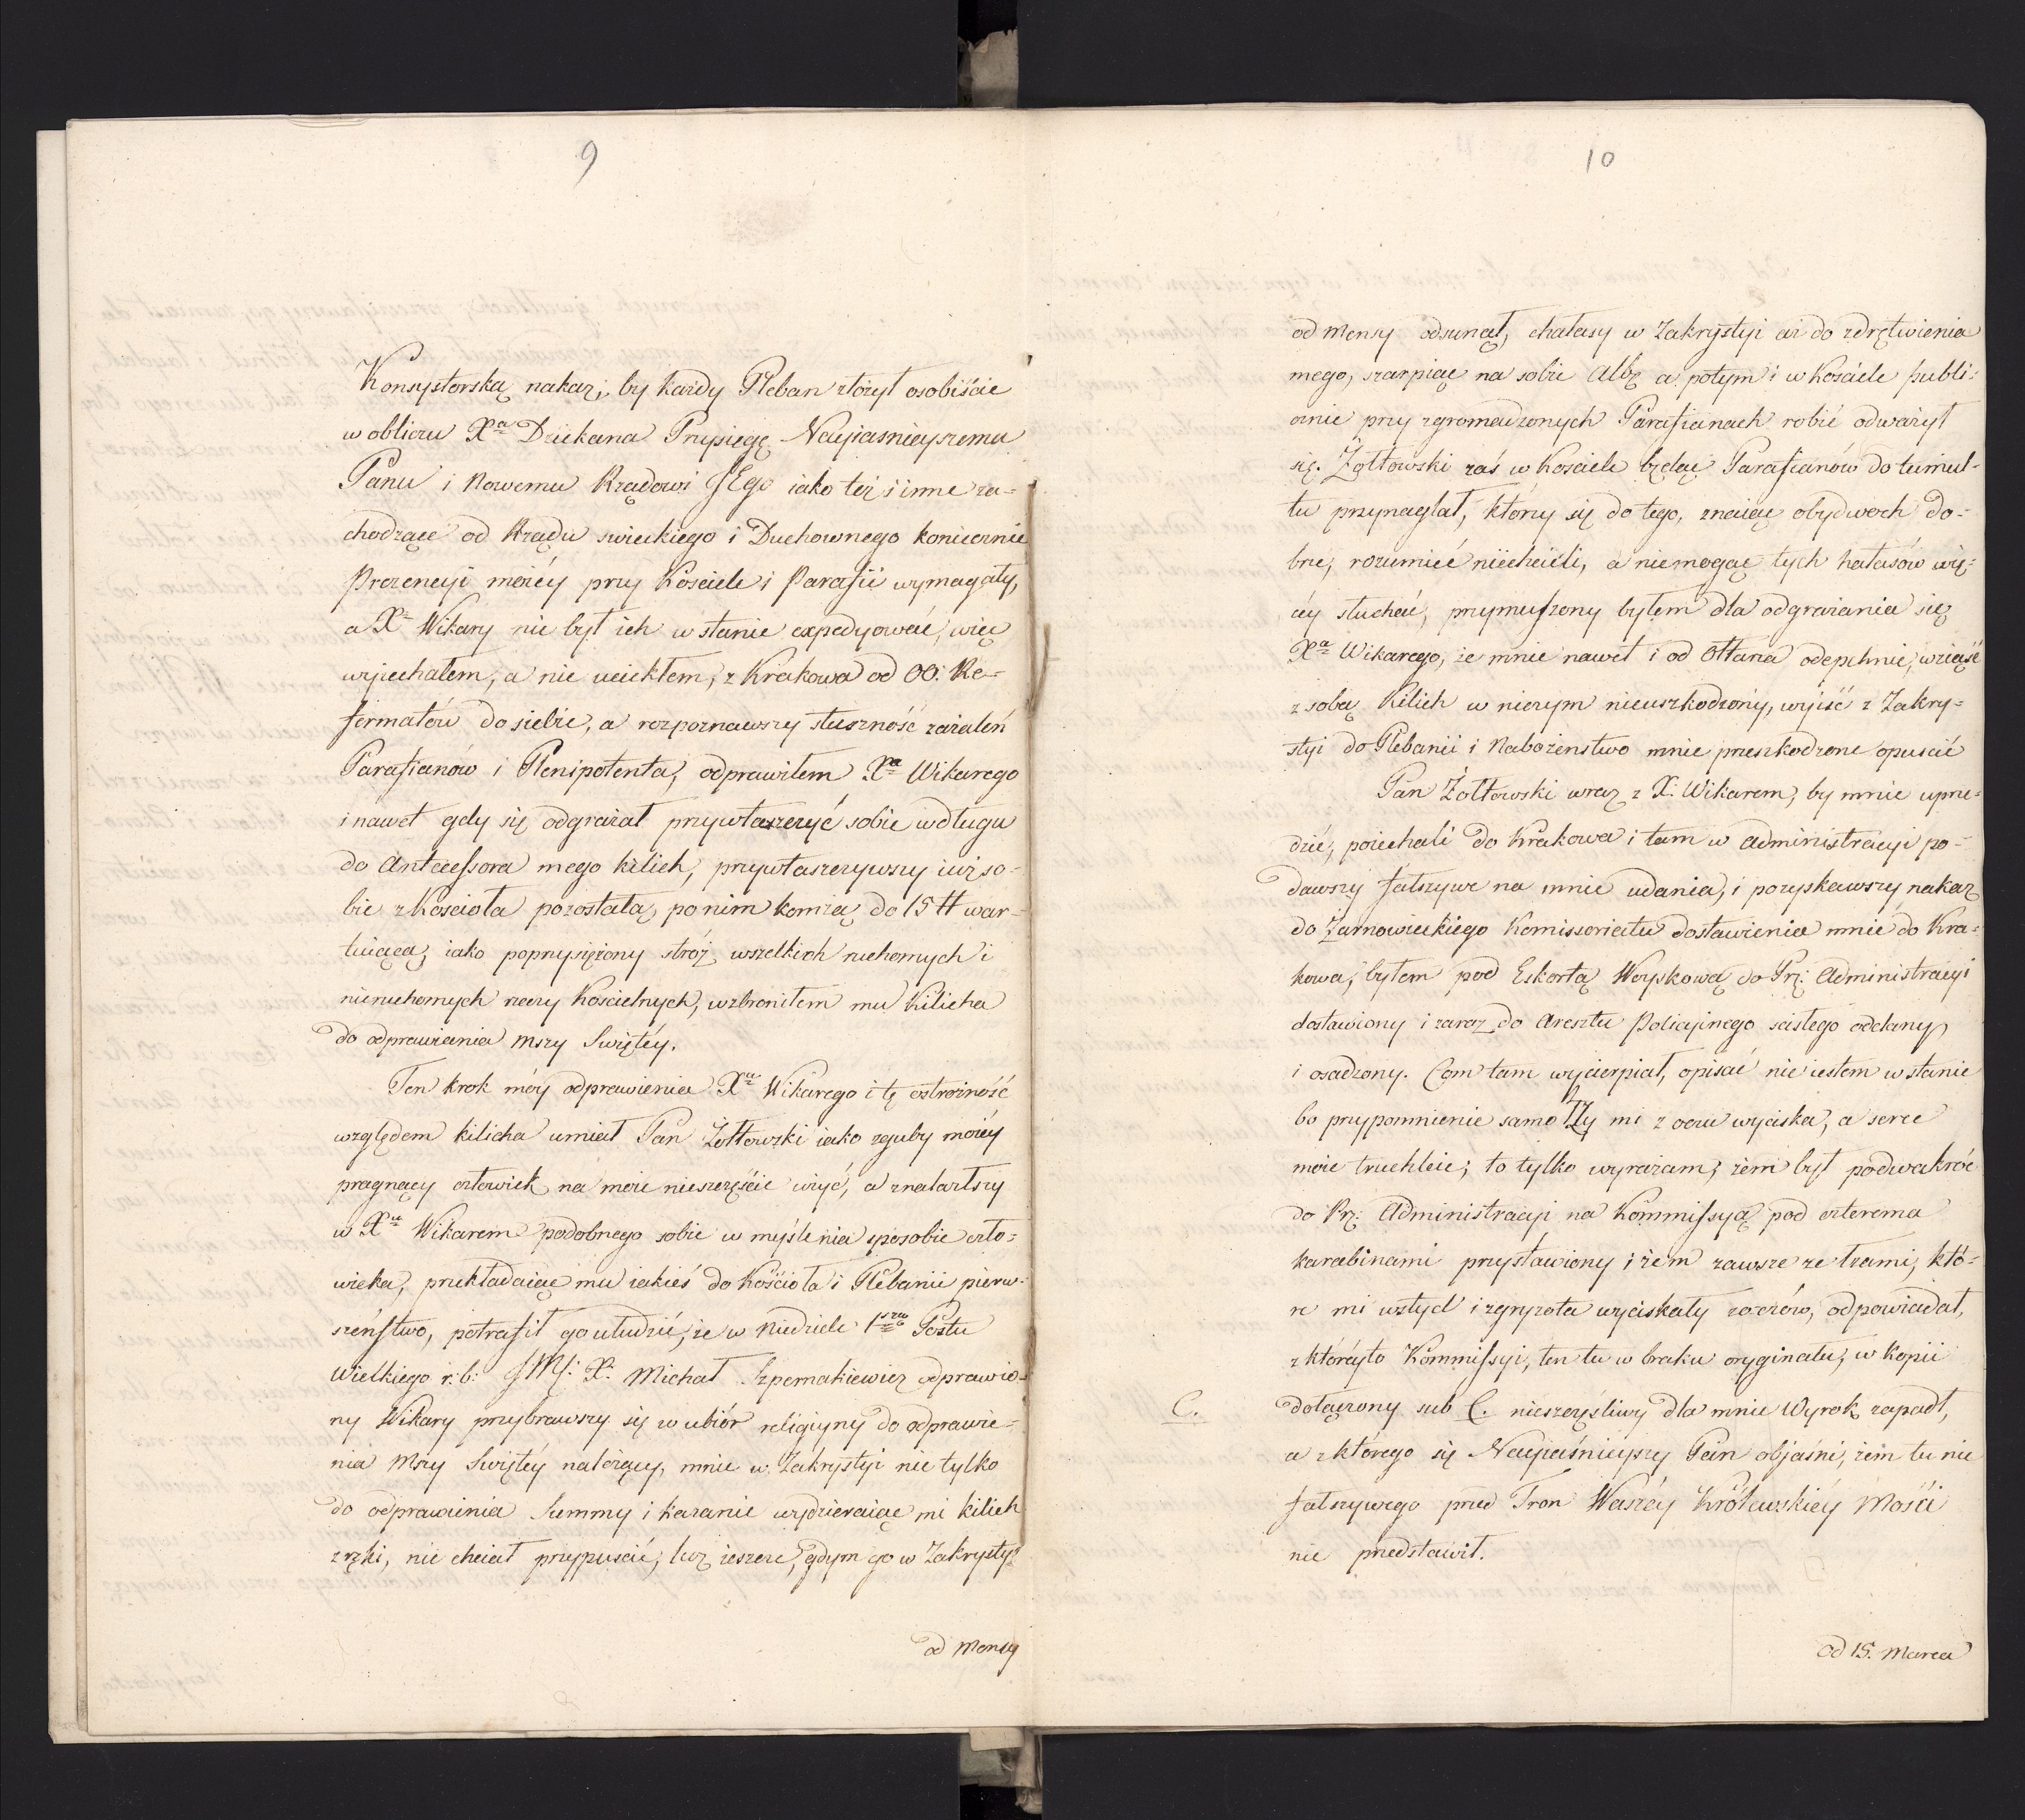 9
Konsystorską nakaz, by każdy Pleban złożył osobiście
w obliczu Xa Dziekana Przysięgę Nayiasnieyszemu
Panu i Nowemu Rządowi JEgo iako też i inne za-
chodzące od Rządu swieckiego i Duchownego koniecznie
Prezencyi moiéy przy Kosciele i Parafii wymagały,
a X Wikary nie był ich w stanie expedyować, więc
wyiechałem, a nie uciekłem, z Krakowa od OO. Re-
formatów do siebie, a rozpoznawszy słuszność zażaleń
Parafianów i Plenipotenta, odprawiłem Xa Wikarego
i nawet gdy się odgrażał przywłaszczyć sobie w długu
do Antecessora mego kilich, przywłaszczywszy iuż so-
bie z Kościoła pozostałą, po nim komżą do 15 # war-
tuiącą, iako poprzysiężony stróż wszelkich ruchomych i
nieruchomych rzeczy Kościelnych, wzbroniłem mu Kilicha
do odprawiania Mszy Swiętéy.
Ten krok móy odprawienia Xa Wikarego i tę ostrożność
względem kilicha umiał Pan Żołtowski iako zguby moiéy
pragnący człowiek na moie nieszczęście użyć, a znalazłszy
w Xu Wikarem podobnego sobie w myślenia sposobie czło-
wieka, przekładaiąc mu iakieś do Kościoła i Plebanii pierw-
szeństwo, potrafił go utudzić, że w Niedziele 1szą Postu
Wielkiego r: b: JMć: X: Michał Szpernakiewicz odprawio-
ny Wikary przybrawszy się w ubiór religiyny do odprawie-
nia Mszy Swiętéy należący, mnie w Zakrystyi nie tylko
do odprawienia Summy i kazanie wydzieraiąc mi kilich
z ręki, nie chciał przypuścić, lecz ieszcze, gdym go w Zakrystyi
od Mensy
10
od Mensy odsunął, chałasy w Zakrystyi aż do zdrętwienia
mego, szarpiąc na sobie Albę a potym i w Kościele publi-
cznie przy zgromadzonych Parafianach robić odważył
się. Żołtowski zaś w Kosciele będąc Parafianów do tumul-
tu przynaglał, którzy się do tego, znaiąc obydwoch do-
brze, rozumieć niechcieli, a niemogąc tych hałasów wię-
céy słuchać, przymuszony byłem dla odgrażania się
Xa Wikarego, że mnie nawet i od Ołtarza odepchnie, wziąść
z sobą Kilich w niczym nieuszkodzony, wyiść z Zakry-
styi do Plebanii i Nabożenstwo mnie przeszkodzone opuścić
Pan Żołtowski wraz z X: Wikarem, by mnie uprze-
dzić, poiechali do Krakowa i tam w Administracyi po-
dawszy fałszywe na mnie udania, i pozyskawszy nakaz
do Żarnowieckiego Komissoriatu dostawienia mnie do Kra-
kowa, byłem pod Eskortą Woyskową do Prz: Administracyi
dostawiony i zaraz do Aresztu Policyinego scisłego oddany
i osadzony. Com tam wycierpiał, opisać nie iestem w stanie
bo przypomnienie samo łzy mi z oczu wyciska, a serce
moie truchleie; to tylko wyrażam, żem był podwakroć
do Prz: Administracyi na Kommissyą pod czterema
karabinami przystawiony i żem zawsze ze łzami, któ-
re mi wstyd i zgryzota wyciskały z oczów, odpowiadał,
z któréyto Kommissyi, ten tu w braku oryginału, w kopii
C.
dołączony sub C. nieszczęśliwy dla mnie Wyrok zapadł,
a z którego się Nayiaśnieyszy Pan objaśni, żem tu nic
fałszywego przed Tron Waszéy Królewskiéy Mości
nie przedstawił.
od 15. Marca